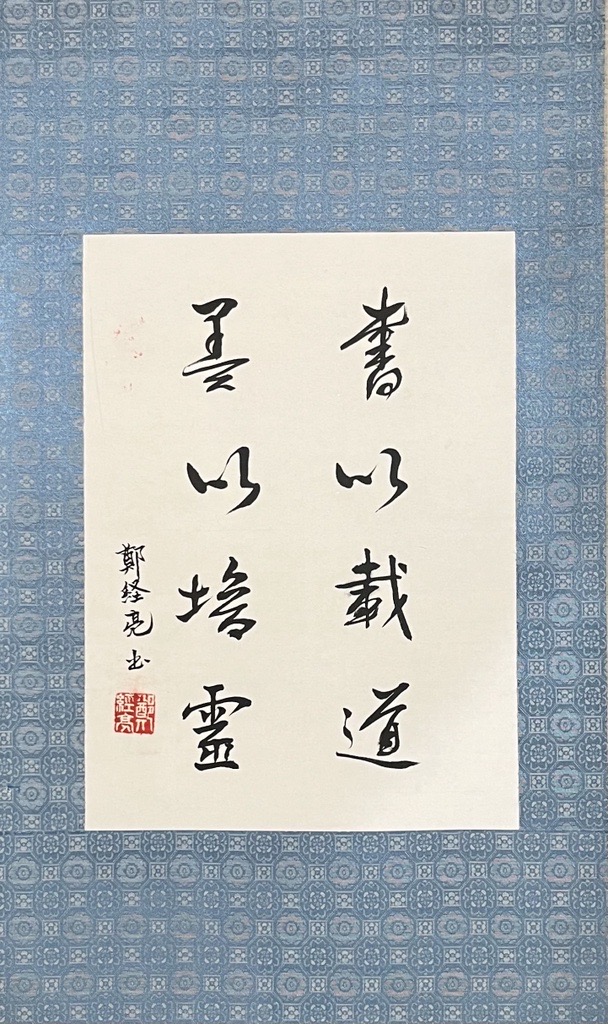 書以載道
美以培靈
鄭経亮书
鄭經亮